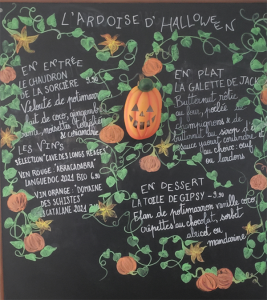 L'ARDOISE D'HALLOWEEN
EN ENTRÉE
LE CHAUDRON
DE LA SORCIÈRE
Velouté de potimarron
lait de coco, gingembre
noisette
& coriandre
LES VINS
SÉLECTION "CAVE DES LONGS RÉAGES"
VIN ROUGE: "ABRACADABRA"
LANGUEDOC 2021 BIO
VIN ORANGE: "DOMAINE
DES SCHISTES"
CATALANE 2021
EN PLAT
LA GALETTE DE JACK
Butternut rôtie
au four, poêlée
champignons &
butternut au sirop d'
sauce yaourt
au chèvre
ou lardons
EN DESSERT
LA TOILE DE GIPSY
Flan de potimarron vanille coco
Crêpettes au chocolat, sorbet
abricot ou
mandarine